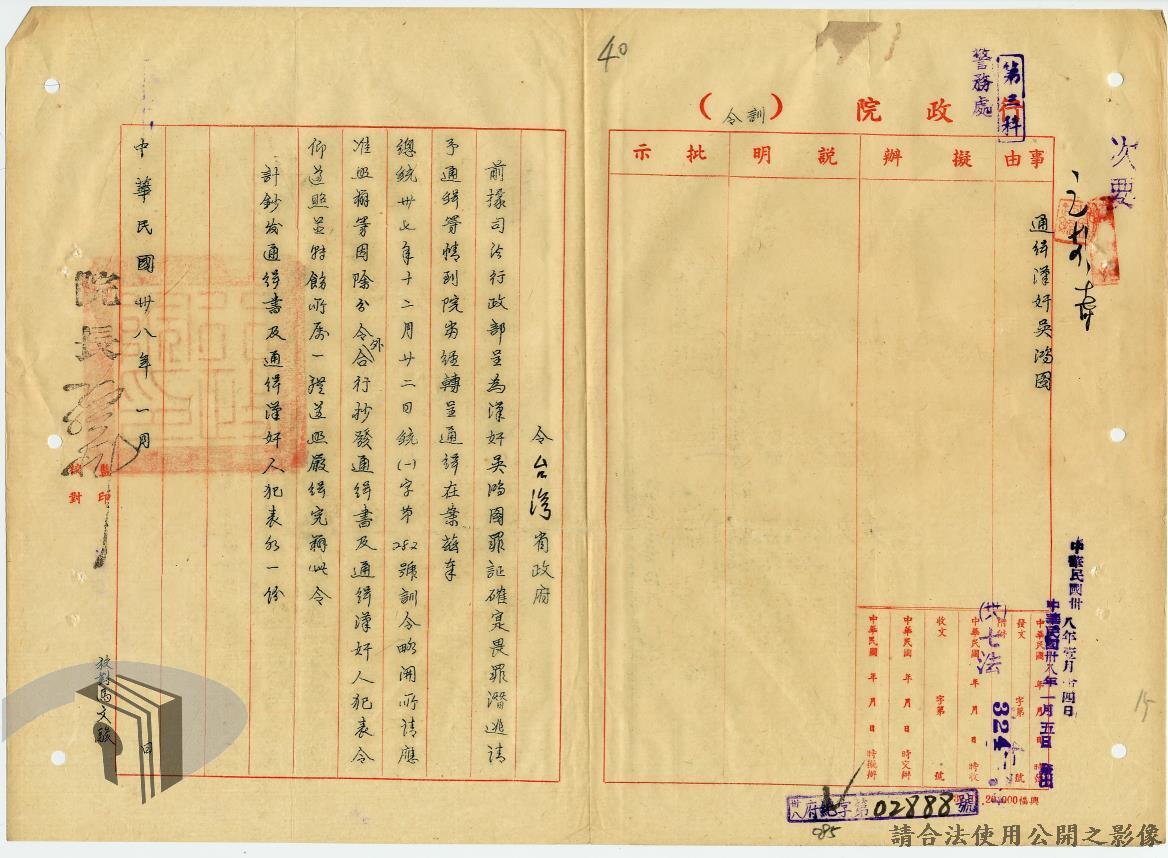 40
警務處
第三科
行政院（訓令）
次要
事由
擬辦
說明
批示
通緝漢奸吳鴻國
中華民國卅八年壹月十四日
中華民國卅八年一月五日
發文 字第 號
附件
(卅)七法
324
中華民國 年 月 日 時收
收文 字第 號
中華民國 年 月 日 時交辦
中華民國 年 月 日 時擬辦
15
卅八府 字第02888號
085
令台灣省政府
前據司法行政部呈為漢奸吳鴻國罪証確寔畏罪潛逃請
予通緝等情到院省經轉呈通緝在案茲奉
總統卅七年十二月廿二日統(一)字第282號訓令略開所請應
准照辦等因除分令外合行抄發通緝書及通緝漢奸人犯表令
仰遵照並轉飭所屬一體遵照嚴緝究辦此令
計鈔發通緝書及通緝漢奸人犯表各一份
中華民國卅八年一月 日
院長
監印
校對
校對馬文駿
請合法使用公開之影像